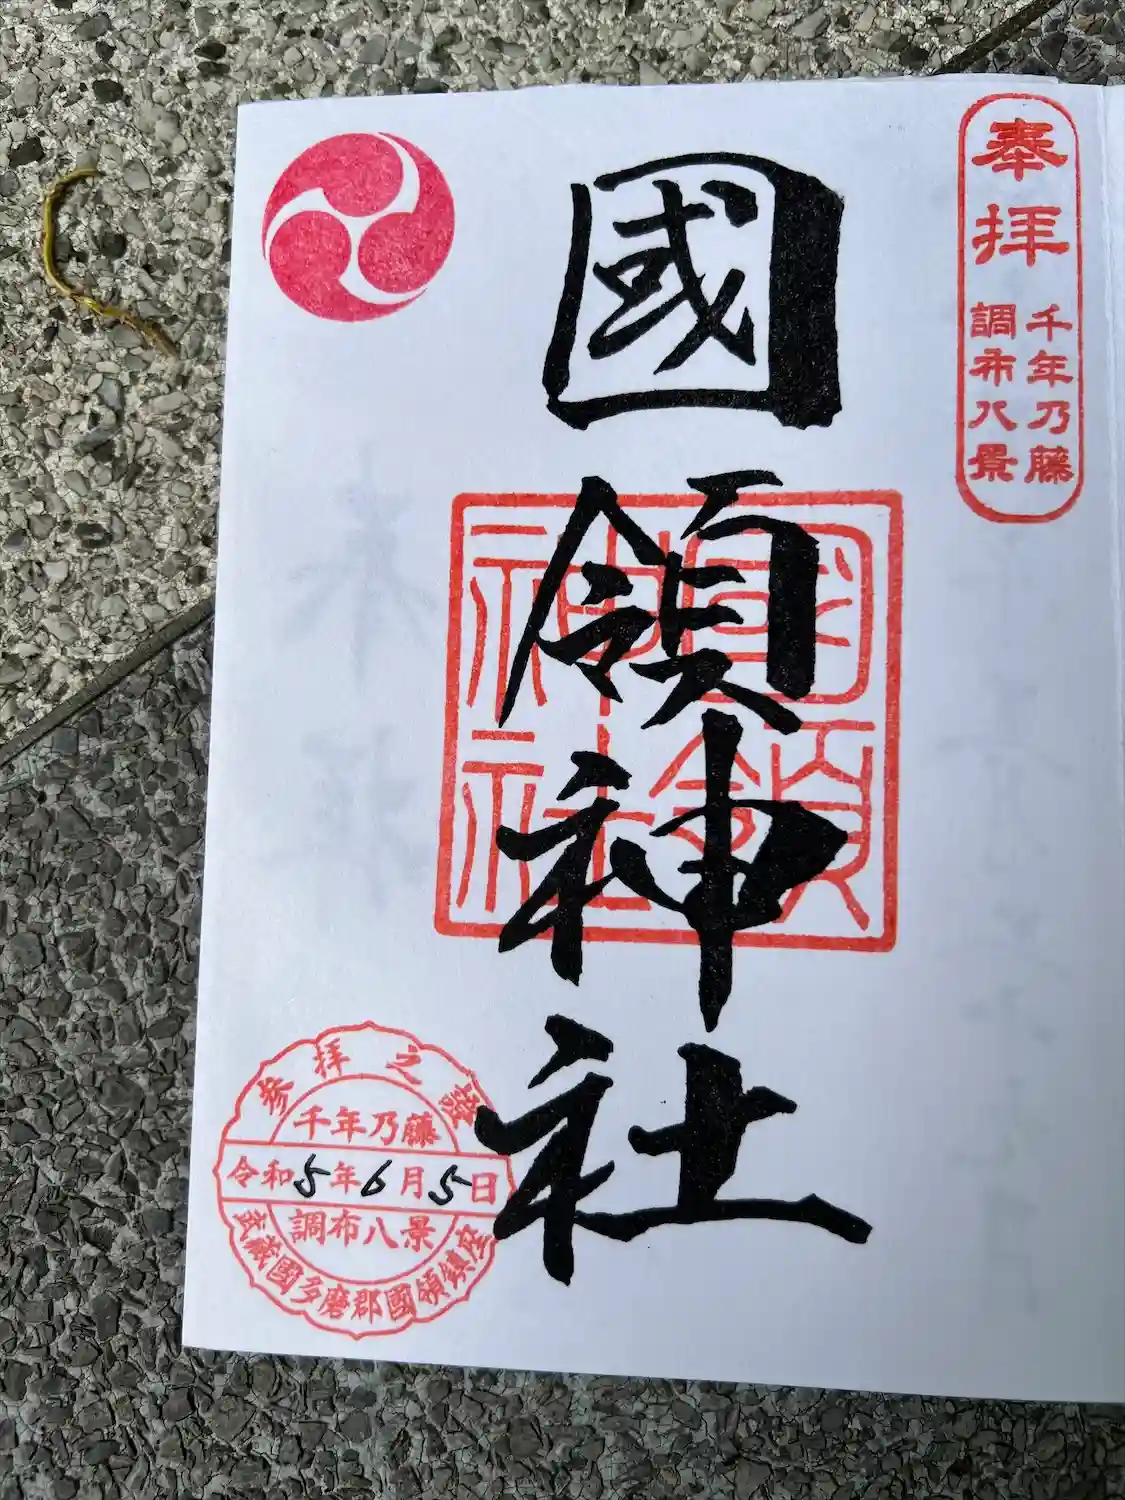 奉拝
千年乃藤
調布八景
國領神社
國領
神社
参拝之證
千年乃藤
令和5年6月5日
調布八景
武蔵國多磨郡國領鎮座